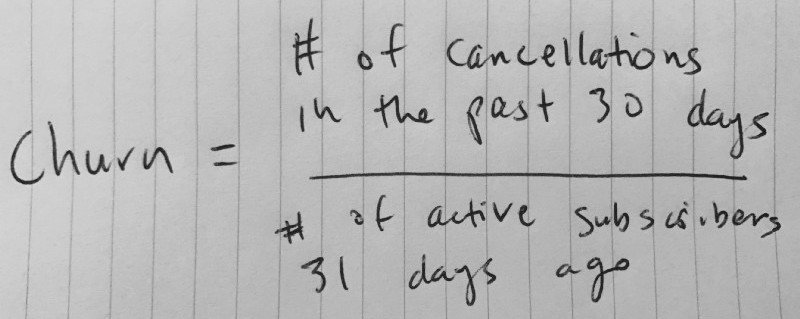 # of cancellations
in the past 30 days
Churn =
# of active subscribers
31 days ago